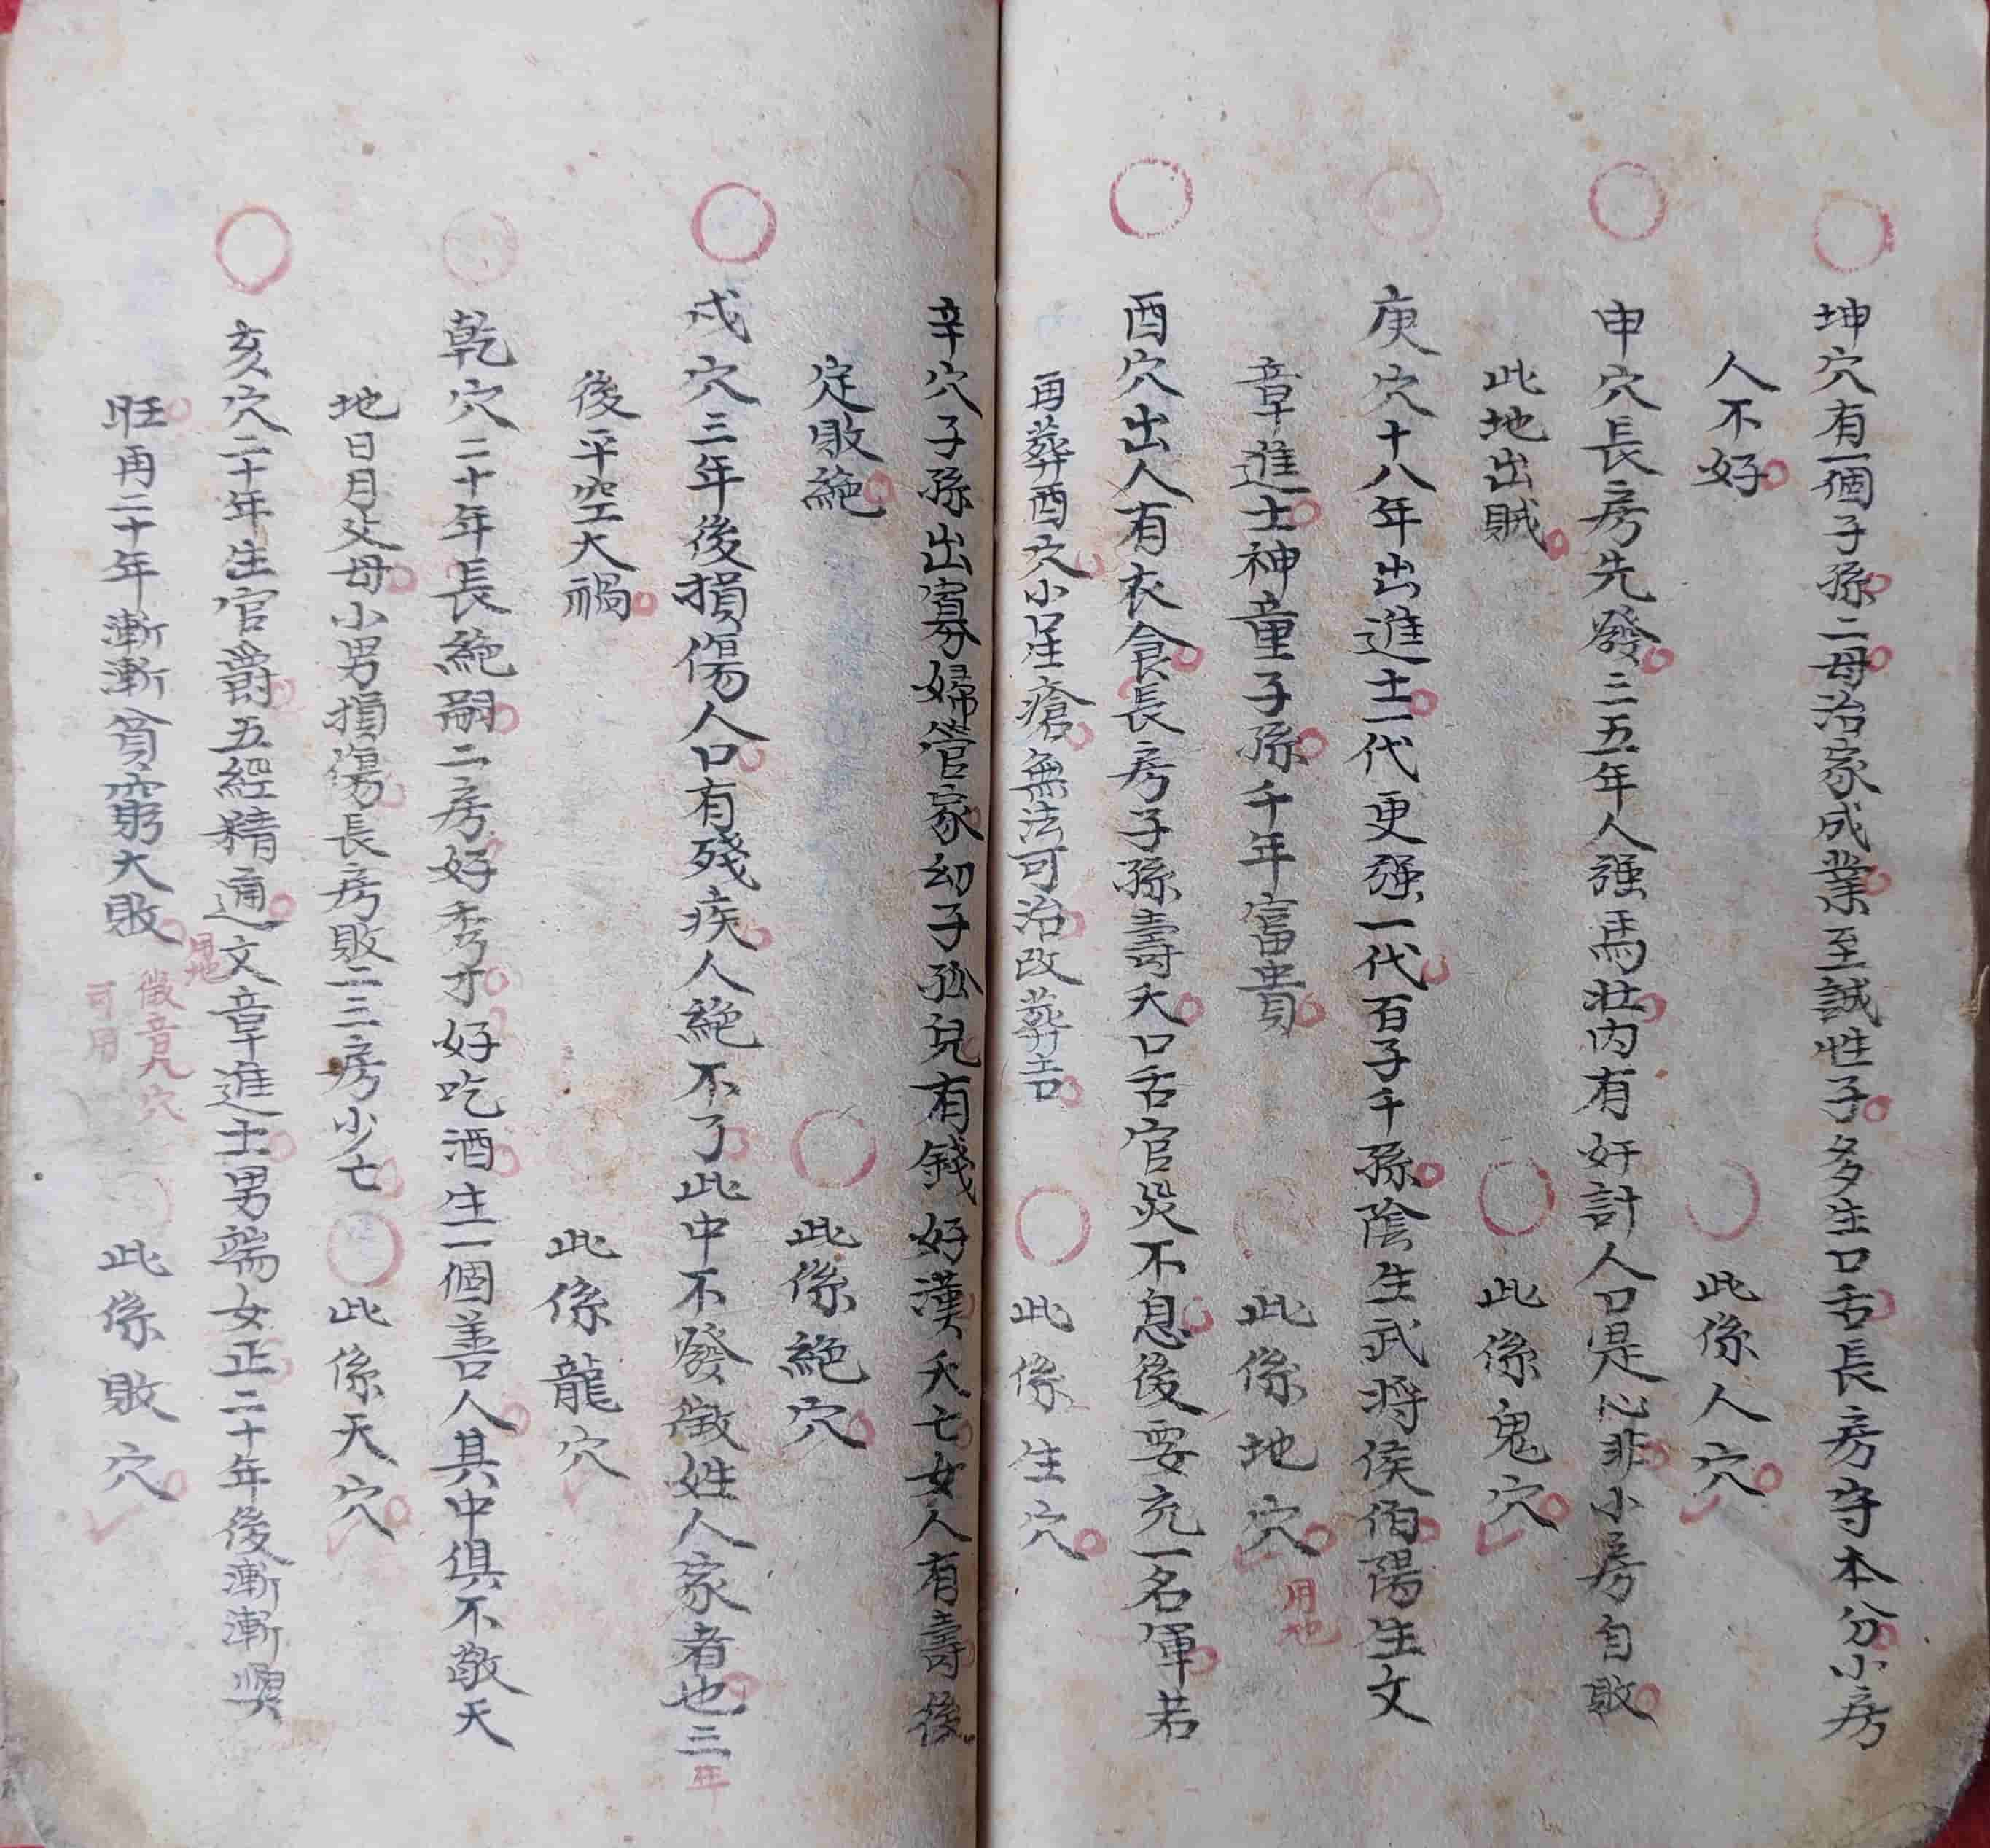 坤穴有一個子孫二母治家成業至誠性子多生口舌長房守本分小房
人不好 此係人穴
申穴長房先發三五年人强馬壯内有奸計人口是心非小房自敗
此地出賊 此係鬼穴
庚穴十八年出進士一代更强一代百子千孫陰生武将侯伯陽生文
章進士神童子孫千年富貴 此係地穴
用地
酉穴出人有衣食長房子孫壽夭口舌官災不息後要充一名軍若
再葬酉穴小生瘡無法可治改葬吉 此係生穴
辛穴子孫出寡婦管家幼子孤兒有錢好漢夭亡女人有壽後
定敗絶 此係絶穴
戍穴三年後損傷人口有殘疾人絶不了此中不發徵姓人家者也三年
後平空大禍 此係龍穴
乾穴二十年長絶嗣二房好秀才好吃酒生一個善人其中俱不敬天
地日月父母小男損傷長房敗二三房少亡 此係天穴
亥穴二十年生官爵五經精通文章進士男端女正二十年後漸漸
旺再二十年漸漸貧窮大敗 此係敗穴
用地
徵音凡穴
可用